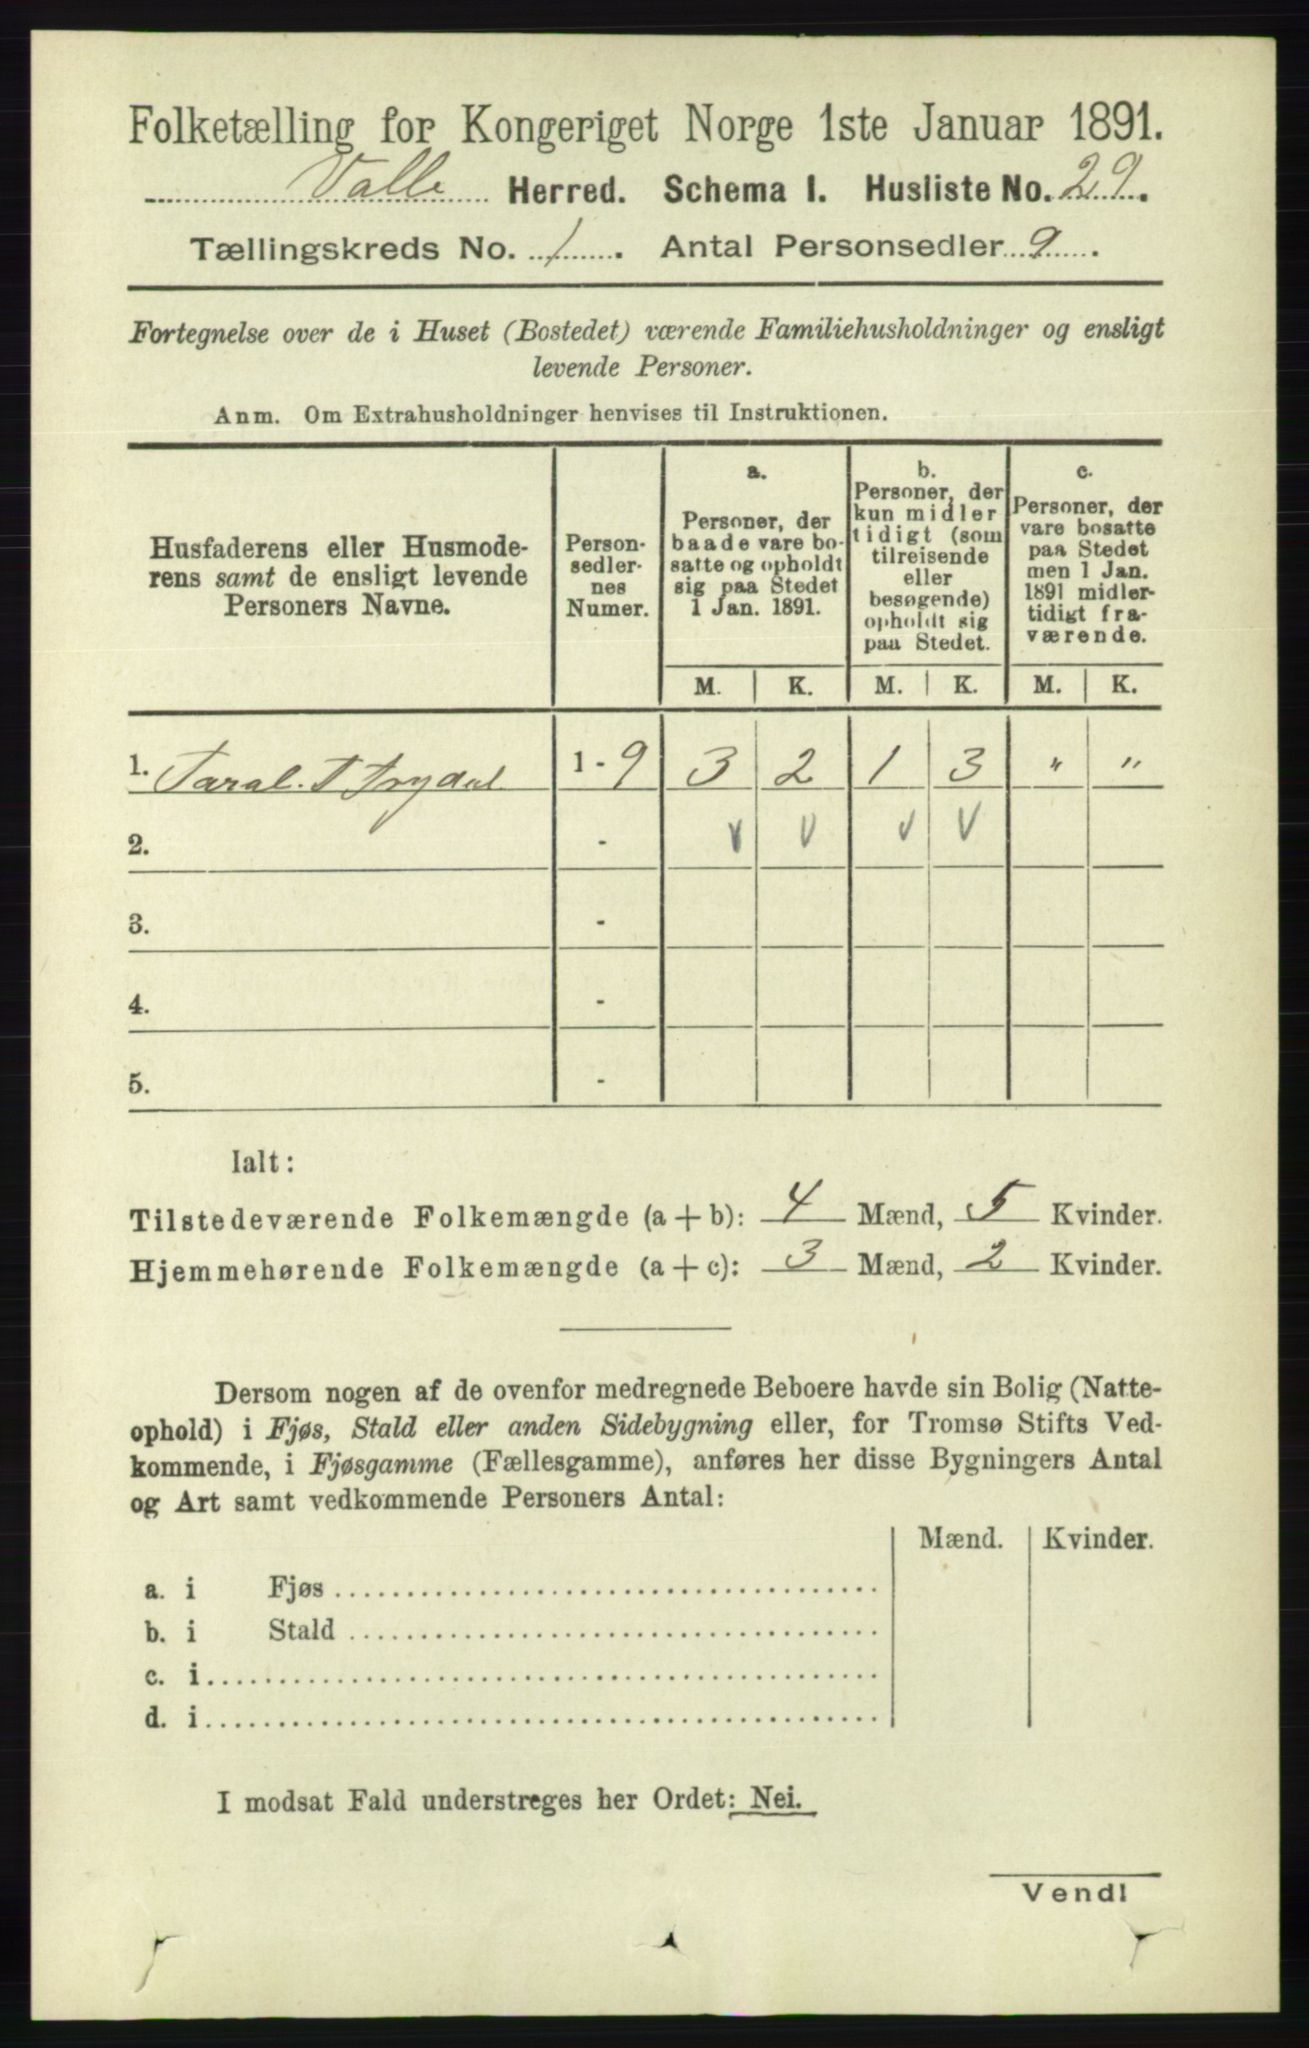 Folketælling for Kongeriget Norge 1ste Januar 1891.
Valle Herred. Schema I. Husliste No. 29.
Tællingskreds No. 1. Antal Personsedler 9.
Fortegnelse over de i Huset (Bostedet) værende Familiehusholdninger og ensligt
levende Personer.
Anm. Om Extrahusholdninger henvises til Instruktionen.
Husfaderens eller Husmode-
rens samt de ensligt levende
Personers Navne.
Person-
sedler-
nes
Numer.
a.
Personer, der
baade vare bo-
satte og opholdt
sig paa Stedet
1 Jan. 1891.
b.
Personer, der
kun midler
tidigt (som
tilreisende
eller
besøgende)
opholdt sig
paa Stedet.
c.
Personer, der
vare bosatte
paa Stedet
men 1 Jan.
1891 midler-
tidigt fra-
værende.
M. K. M. K. M. K.
1. Taral. T 1 - 9 3 2 1 3 " "
2. - V V V V
3. -
4. -
5. -
Ialt:
Tilstedeværende Folkemængde (a + b): 4 Mænd, 5 Kvinder.
Hjemmehørende Folkemængde (a + c): 3 Mænd, 2 Kvinder.
Dersom nogen af de ovenfor medregnede Beboere havde sin Bolig (Natte-
ophold) i Fjøs, Stald eller anden Sidebygning eller, for Tromsø Stifts Ved-
kommende, i Fjøsgamme (Fællesgamme), anføres her disse Bygningers Antal
og Art samt vedkommende Personers Antal:
Mænd. Kvinder.
a. i Fjøs
b. i Stald
c. i
d. i
I modsat Fald understreges her Ordet: Nei.
Vend!